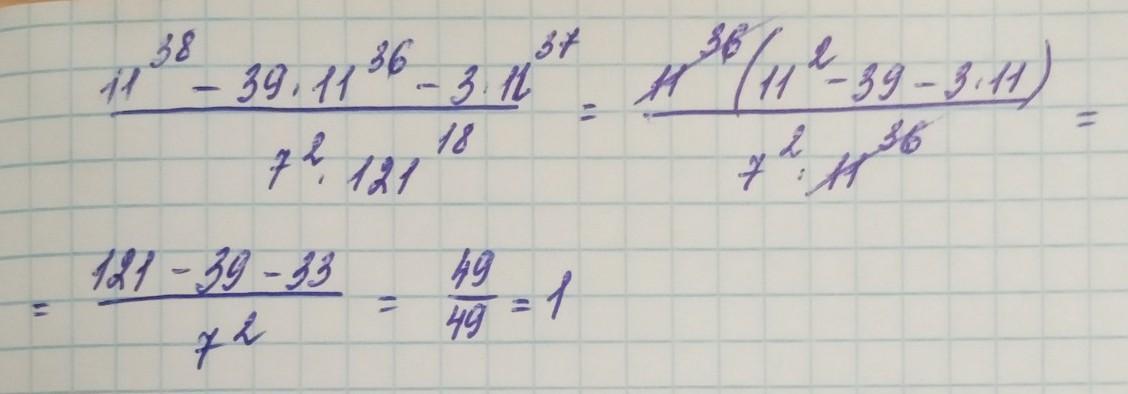 (11^38 − 39·11^36 − 3·11^37) / (7^2·121^18) = (11^36(11^2 − 39 − 3·11)) / (7^2·11^36) =
= (121 − 39 − 33) / 7^2 = 49/49 = 1